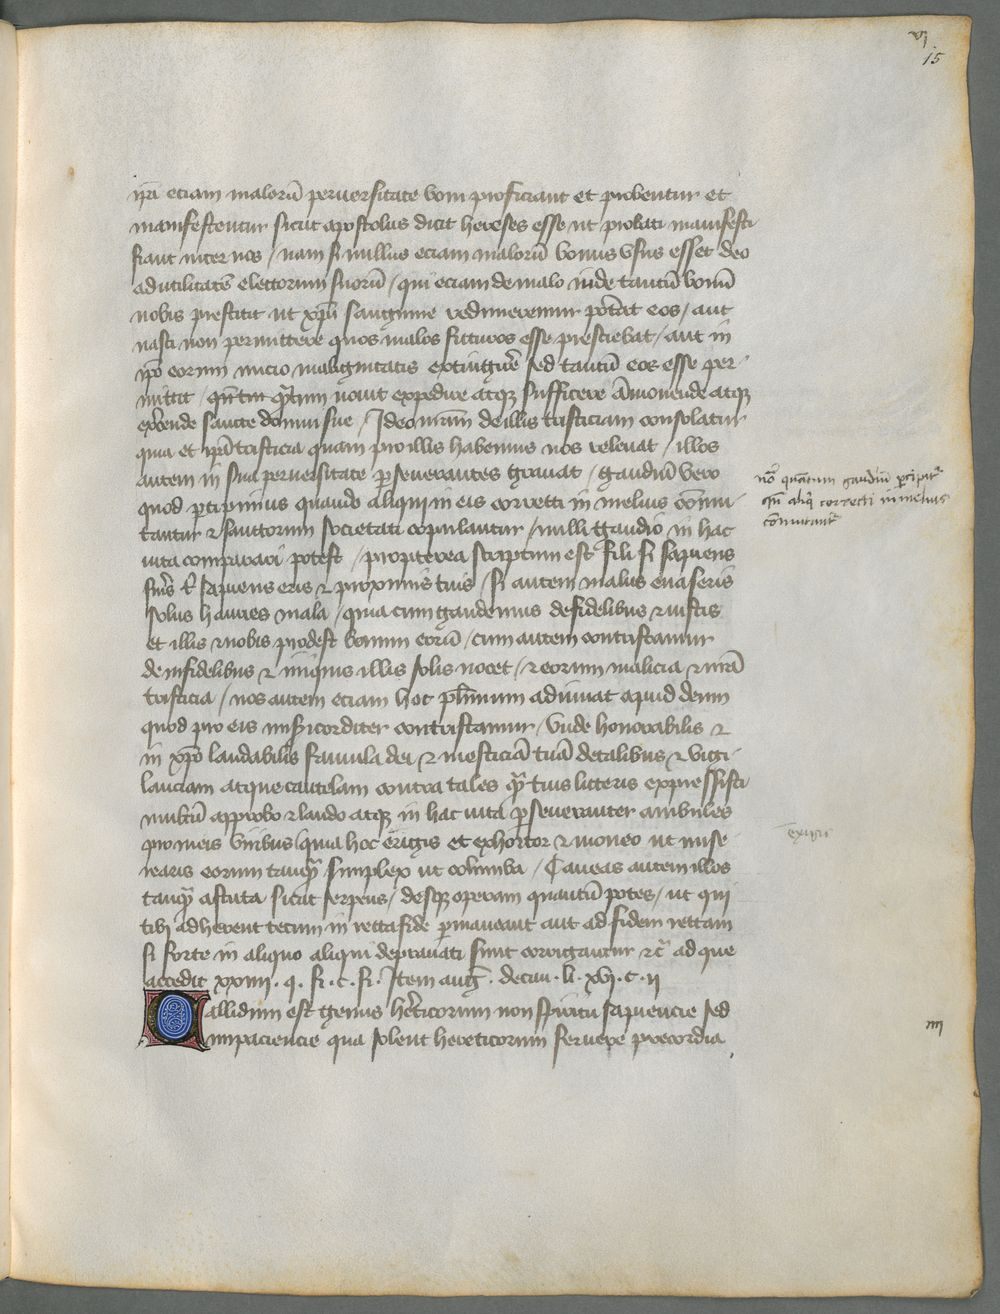 vj
15
ipsi eciam malorū peruersitate boni proficiant et probentur et
manifestentur sicut apostolus dicit hereses esse ut probati manifesti
fiant inter nos / nam si nullus eciam malorū bonus vsus esset deo
ad utilitatē electorum suorū / qui eciam de malo iude tantū bonū
nobis prestitit ut xp̄i sanguine redimeremur pōtat eos / aut
nasci non permittere quos malos futuros esse presciebat / aut in
ip̄o eorum inicio malignitatis extinguē sed tantū eos esse per-
mittit / qn̄tm nouit expedire atqꝫ sufficere āmonende atqꝫ
exercende sancte domui sue / Ideo nrām de illis tristiciam consolatur
quia et ip̄a tristicia quam pro illis habemus nos releuat / illos
autem in sua peruersitate ꝑseuerantes grauat / gaudiū vero
quod ꝑcipimus quando aliqui in eis correcti in melius cōmu-
tantur ⁊ sanctorum societati copulantur / nulli gaudio in hac
uita comparari potest / propterea scriptum est fili si sapiens
fuis t̄ sapiens eris ⁊ proximis tuis / si autem malus euaseris
solus hauries mala / quia cum gaudemus de fidelibus ⁊ iustis
et illis ⁊ nobis prodest bonum eorū / cum autem contristamur
de infidelibus ⁊ iniquis illis solis nocet / ⁊ eorum malicia ⁊ nrā
tristicia / nos autem eciam hoc pl̄imum adiuuat apud deum
quod pro eis misericorditer contristamur / Unde honorabilis ⁊
in xp̄o laudabilis famula dei / ⁊ mesticiā tuā de talibus ⁊ vigi-
lanciam atque cautelam contra tales qm̄ tuis litteris expressisti
multū approbo ⁊ laudo atqꝫ in hac uita ꝑseueranter ambules
pro meis viribus quia hoc exigis et exhortor ⁊ moneo ut mise
rearis eorum tanqm̄ simplex ut columba / Caueas autem illos
tanqm̄ astuta sicut serpens / desqꝫ operam quantū potes / ut qui
tibi adherent tecum in recta fide ꝑmaneant aut ad fidem rectam
si forte in aliquo aliqui deprauati sunt corrigantur ⁊c̄ ad que
accedit xxiiij . q . si . c . si . Item aug̉ . de ciui . li . xvi . c . ii
Callidum est genus hēticorum non spiritu sapiencie sed
impaciencie qua solent hereticorum feruere precordia
no quantum gaudiū ꝑcipit
qn̄ aliqi correcti in melius
cōmutant
exigis
iiij